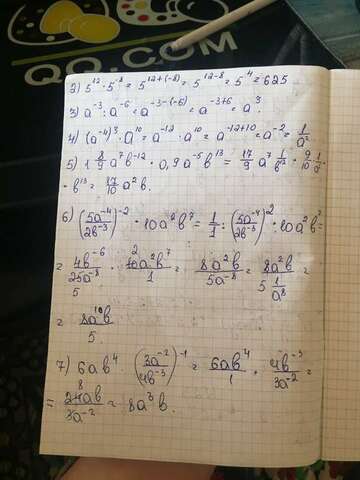 QQ.COM
2) 5¹² · 5⁻⁸ = 5¹²⁺⁽⁻⁸⁾ = 5¹²⁻⁸ = 5⁴ = 625
3) a⁻³ : a⁻⁶ = a⁻³⁻⁽⁻⁶⁾ = a⁻³⁺⁶ = a³.
4) (a⁻⁴)³ · a¹⁰ = a⁻¹² · a¹⁰ = a⁻¹²⁺¹⁰ = a⁻² = 1/a²
5) 1 8/9 a⁷b⁻¹² · 0,9a⁻⁵b¹³ = 17/9 a⁷ 1/b¹² · 9/10 · 1/a⁵ ·
· b¹³ = 17/10 a²b.
6) (5a⁻⁴/2b⁻³)⁻² · 10a⁻²b⁷ = 1/1 : (5a⁻⁴/2b⁻³)² · 10a⁻²b⁷ =
= 4b⁻⁶/25a⁻⁸ · 10a⁻²b⁷/1 = 8a⁻²b/5a⁻⁸ = 8a⁻²b/5 1/a⁸ =
5
2
= 8a¹⁰b/5.
7) 6ab⁴ · (3a⁻²/4b⁻³)⁻¹ = 6ab⁴/1 · 4b⁻³/3a⁻² =
8
= 24ab/3a⁻² = 8a³b.